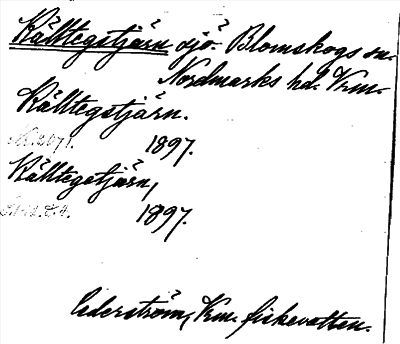 Kälttegstjärn sjö. Blomskogs sn.
Nordmarks hd. Vrm.
Kälttegstjärn.
1897.
Kälttegstjärn,
1897.
Cederström, Vrm. fiskevatten.